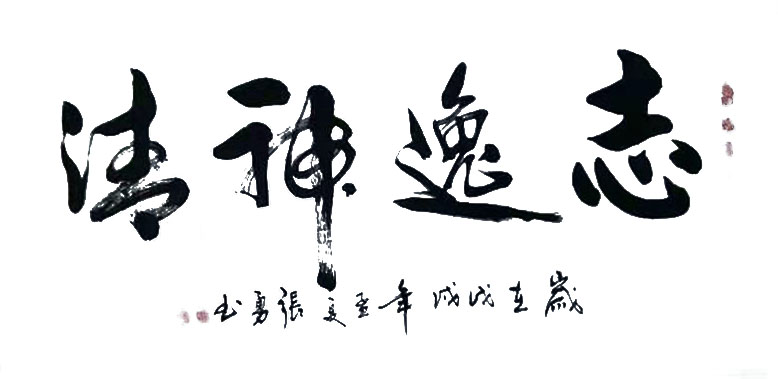 志逸神清
歲在戊戌年孟夏張勇书